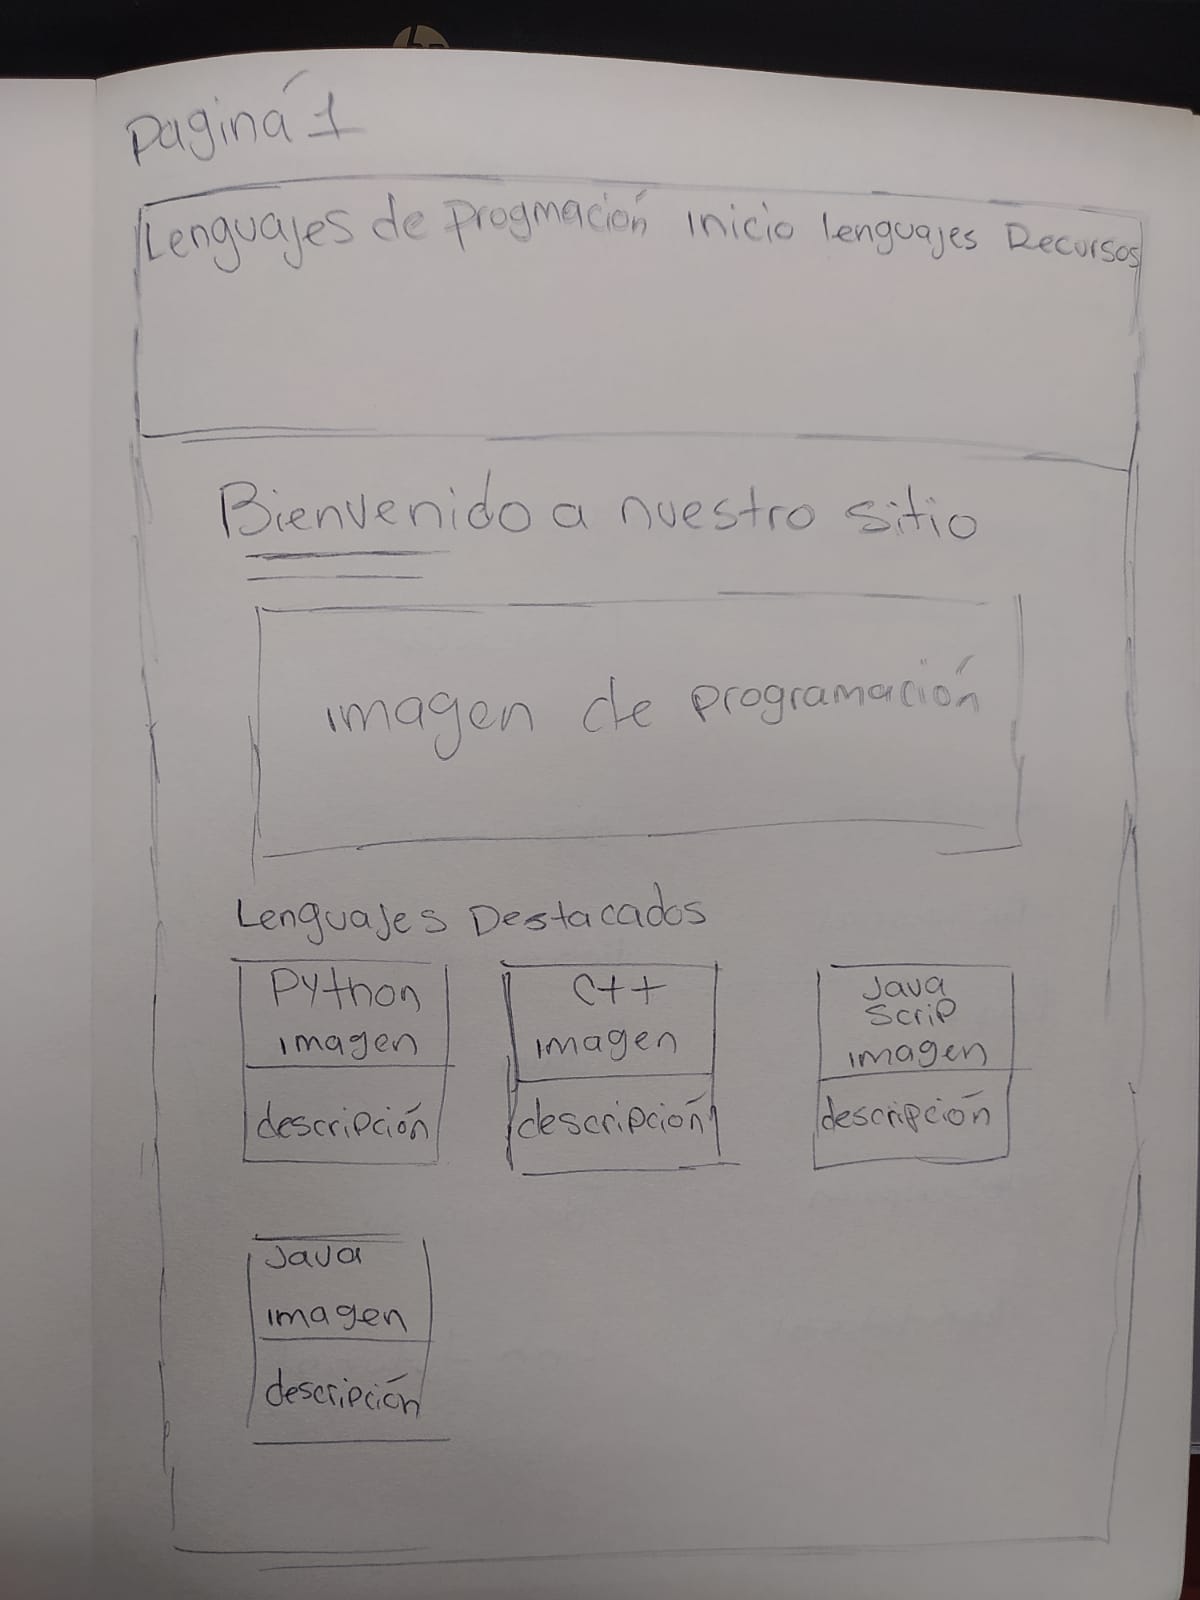 Pagina 1
Lenguajes de progmación inicio lenguajes Recursos
Bienvenido a nuestro sitio
imagen de programación
Lenguajes Destacados
Python
imagen
descripción
C++
imagen
descripción
Java
Scrip
imagen
descripción
Java
imagen
descripción